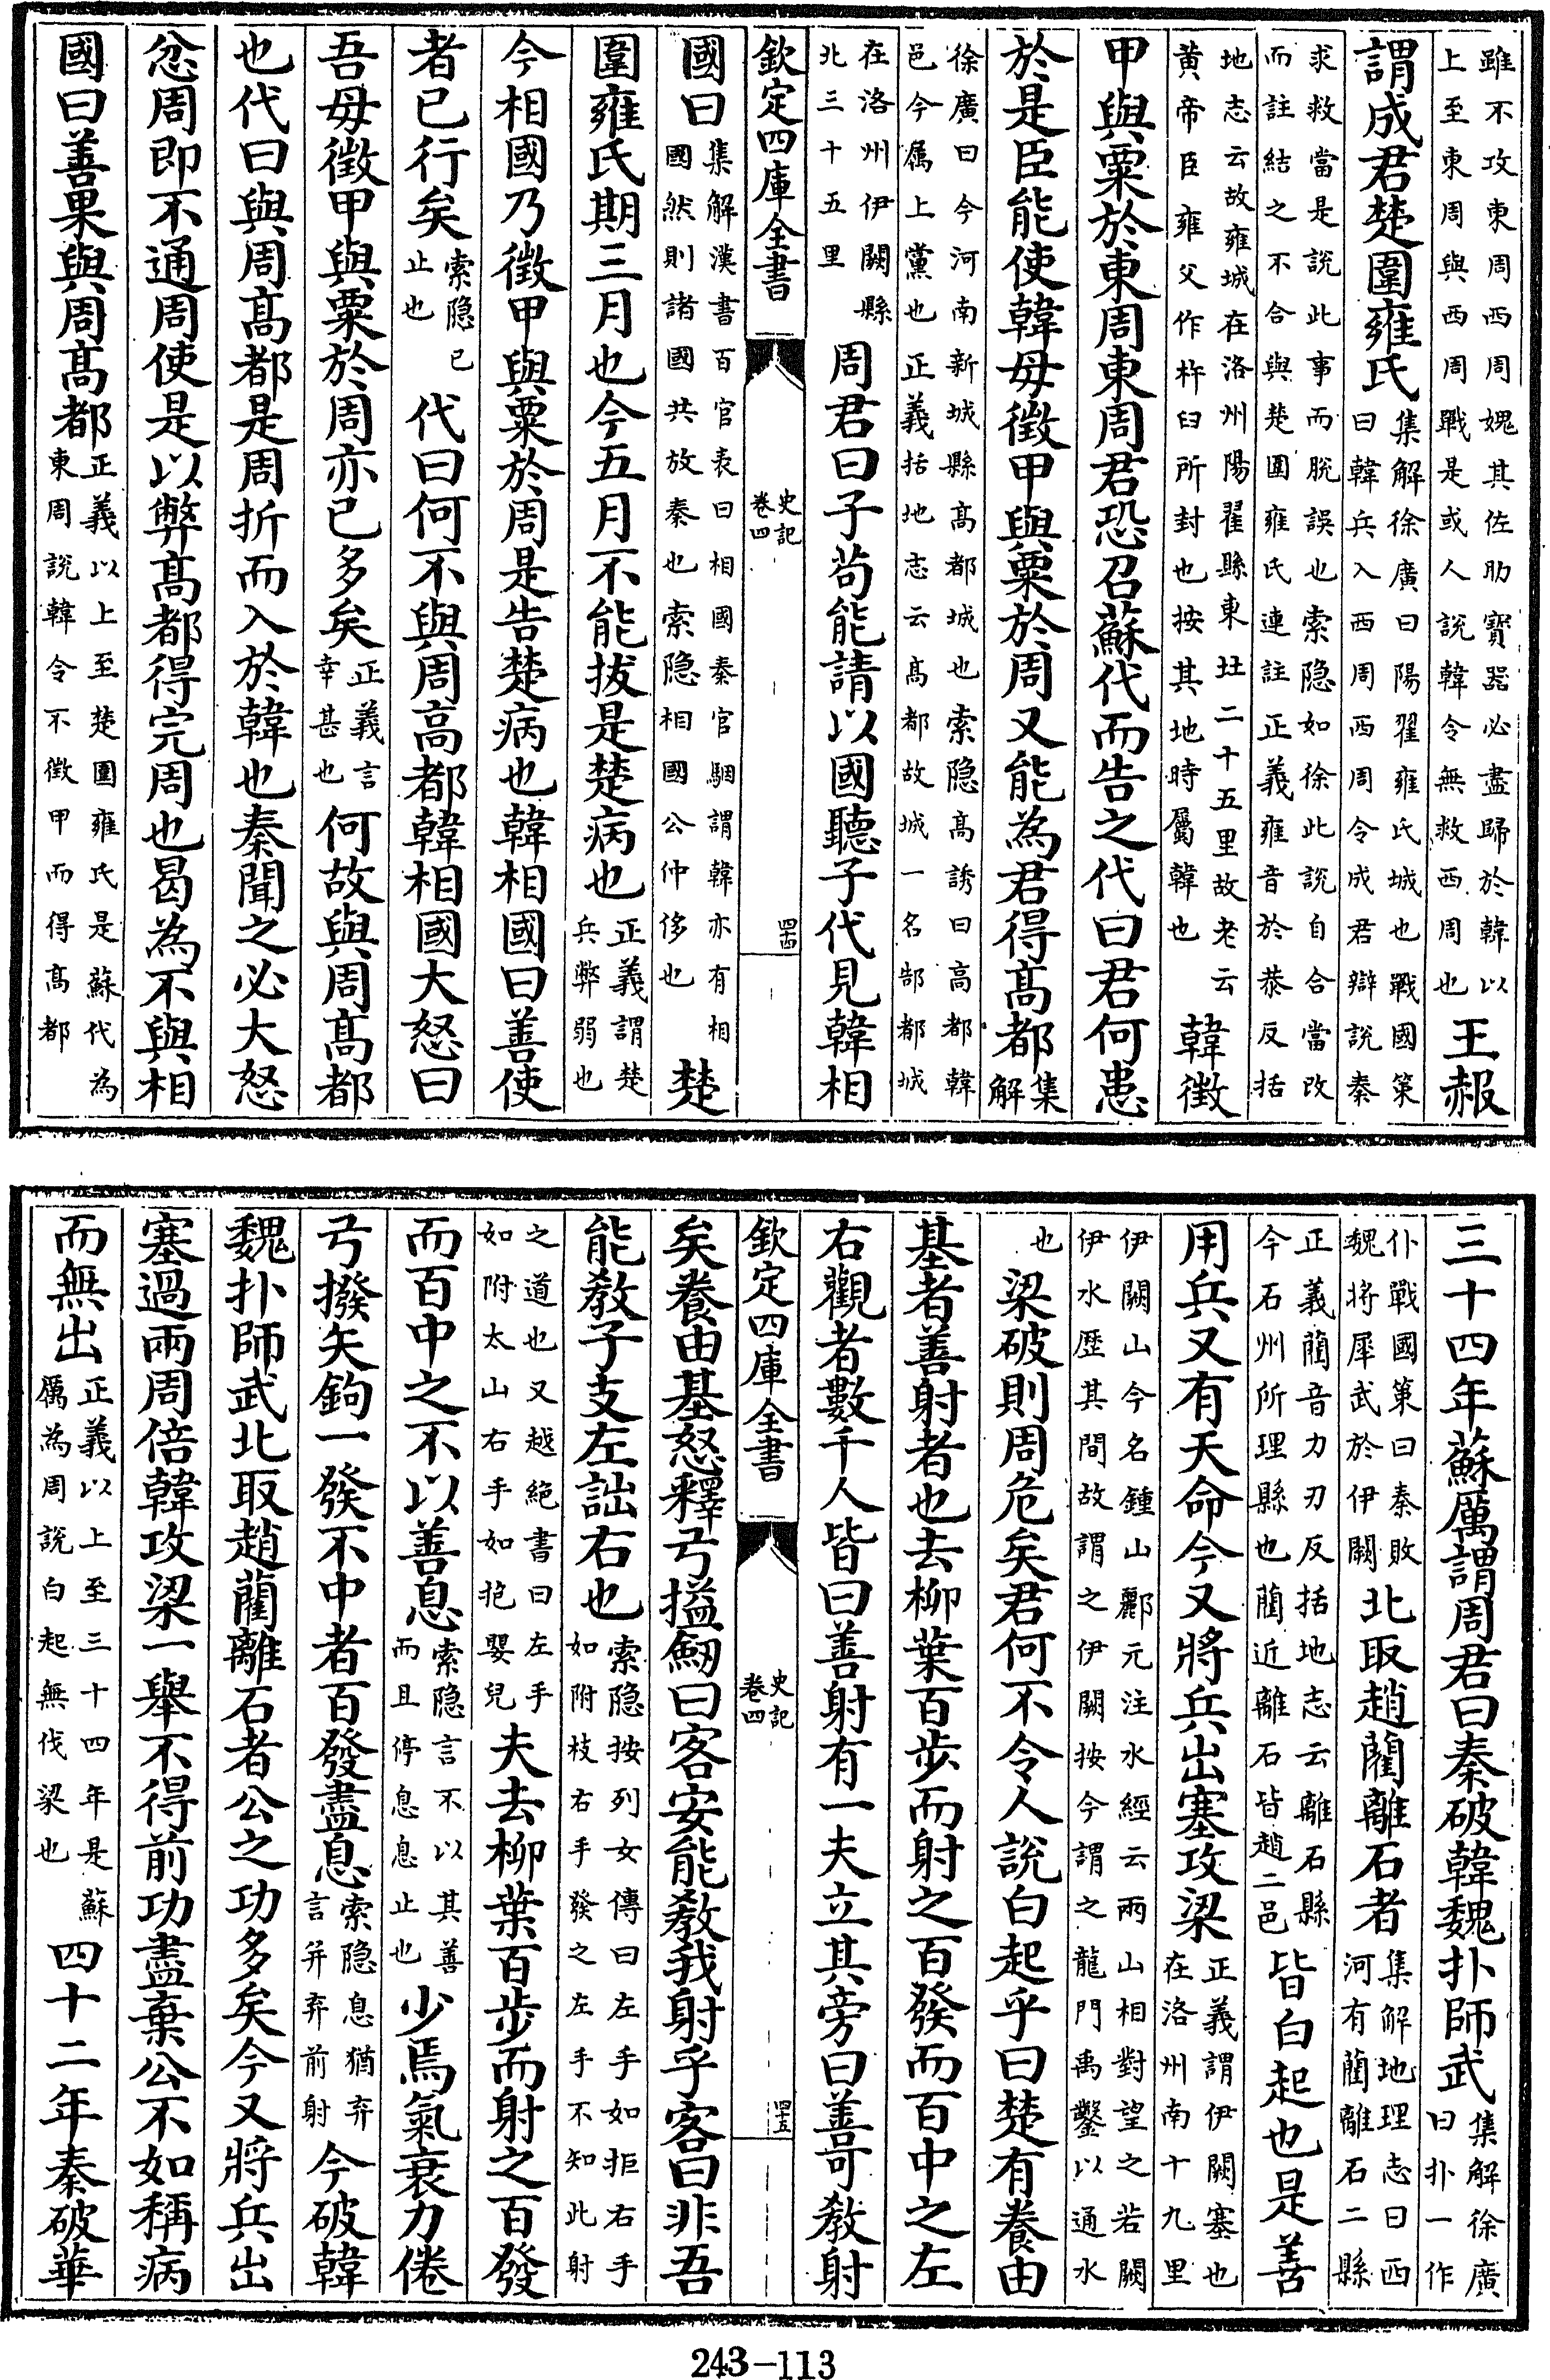 雖不攻東周西周媿其佐助寳器必盡歸於韓以
上至東周與西周戰是或人說韓令無救西周也
王赧
謂成君楚圍雍氏
集解徐廣曰陽翟雍氏城也戰國策
曰韓兵入西周西周令成君辯說秦
求救當是說此事而脫誤也索隐如徐此說自合當改
而註結之不合與楚圍雍氏連註正義雍音於恭反括
地志云故雍城在洛州陽翟縣東北二十五里故老云
黃帝臣雍父作杵臼所封也按其地時屬韓也
韓徵
甲與粟於東周東周君恐召蘇代而告之代曰君何患
於是臣能使韓毋徵甲與粟於周又能為君得髙都
集
解
徐廣曰今河南新城縣髙都城也索隐髙誘曰高都韓
邑今属上黨也正義括地志云髙都故城一名郜都城
在洛州伊闕縣
北三十五里
周君曰子苟能請以國聽子代見韓相
欽定四庫全書
史記
卷四
四十四
國曰
集解漢書百官表曰相國秦官駰謂韓亦有相
國然則諸國共放秦也索隐相國公仲侈也
楚
圍雍氏期三月也今五月不能拔是楚病也
正義謂楚
兵弊弱也
今相國乃徵甲與粟於周是告楚病也韓相國曰善使
者已行矣
索隐已
止也
代曰何不與周高都韓相國大怒曰
吾毋徵甲與粟於周亦已多矣
正義言
幸甚也
何故與周髙都
也代曰與周髙都是周折而入於韓也秦聞之必大怒
忿周即不通周使是以弊髙都得完周也曷為不與相
國曰善果與周髙都
正義以上至楚圍雍氏是蘇代為
東周說韓令不徵甲而得髙都
三十四年蘇厲謂周君曰秦破韓魏扑師武
集解徐廣
曰扑一作
仆戰國策曰秦敗
魏将犀武於伊闕
北取趙藺離石者
集解地理志曰西
河有藺離石二縣
正義藺音力刃反括地志云離石縣
今石州所理縣也藺近離石皆趙二邑
皆白起也是善
用兵又有天命今又將兵出塞攻梁
正義謂伊闕塞也
在洛州南十九里
伊闕山今名鍾山酈元注水經云兩山相對望之若闕
伊水歴其間故謂之伊闕按今謂之龍門禹鑿以通水
也
梁破則周危矣君何不令人說白起乎曰楚有養由
基者善射者也去柳葉百步而射之百發而百中之左
右觀者數千人皆曰善射有一夫立其旁曰善可敎射
欽定四庫全書
史記
卷四
四十五
矣養由基怒釋弓搤劒曰客安能敎我射乎客曰非吾
能敎子支左詘右也
索隐按列女傳曰左手如拒右手
如附枝右手發之左手不知此射
之道也又越絶書曰左手
如附太山右手如抱嬰兒
夫去柳葉百步而射之百發
而百中之不以善息
索隐言不以其善
而且停息息止也
少焉氣衰力倦
弓撥矢鉤一發不中者百發盡息
索隐息猶弃
言并弃前射
今破韓
魏扑師武北取趙藺離石者公之功多矣今又將兵出
塞過兩周倍韓攻梁一舉不得前功盡棄公不如稱病
而無出
正義以上至三十四年是蘇
厲為周說白起無伐梁也
四十二年秦破華
243-113